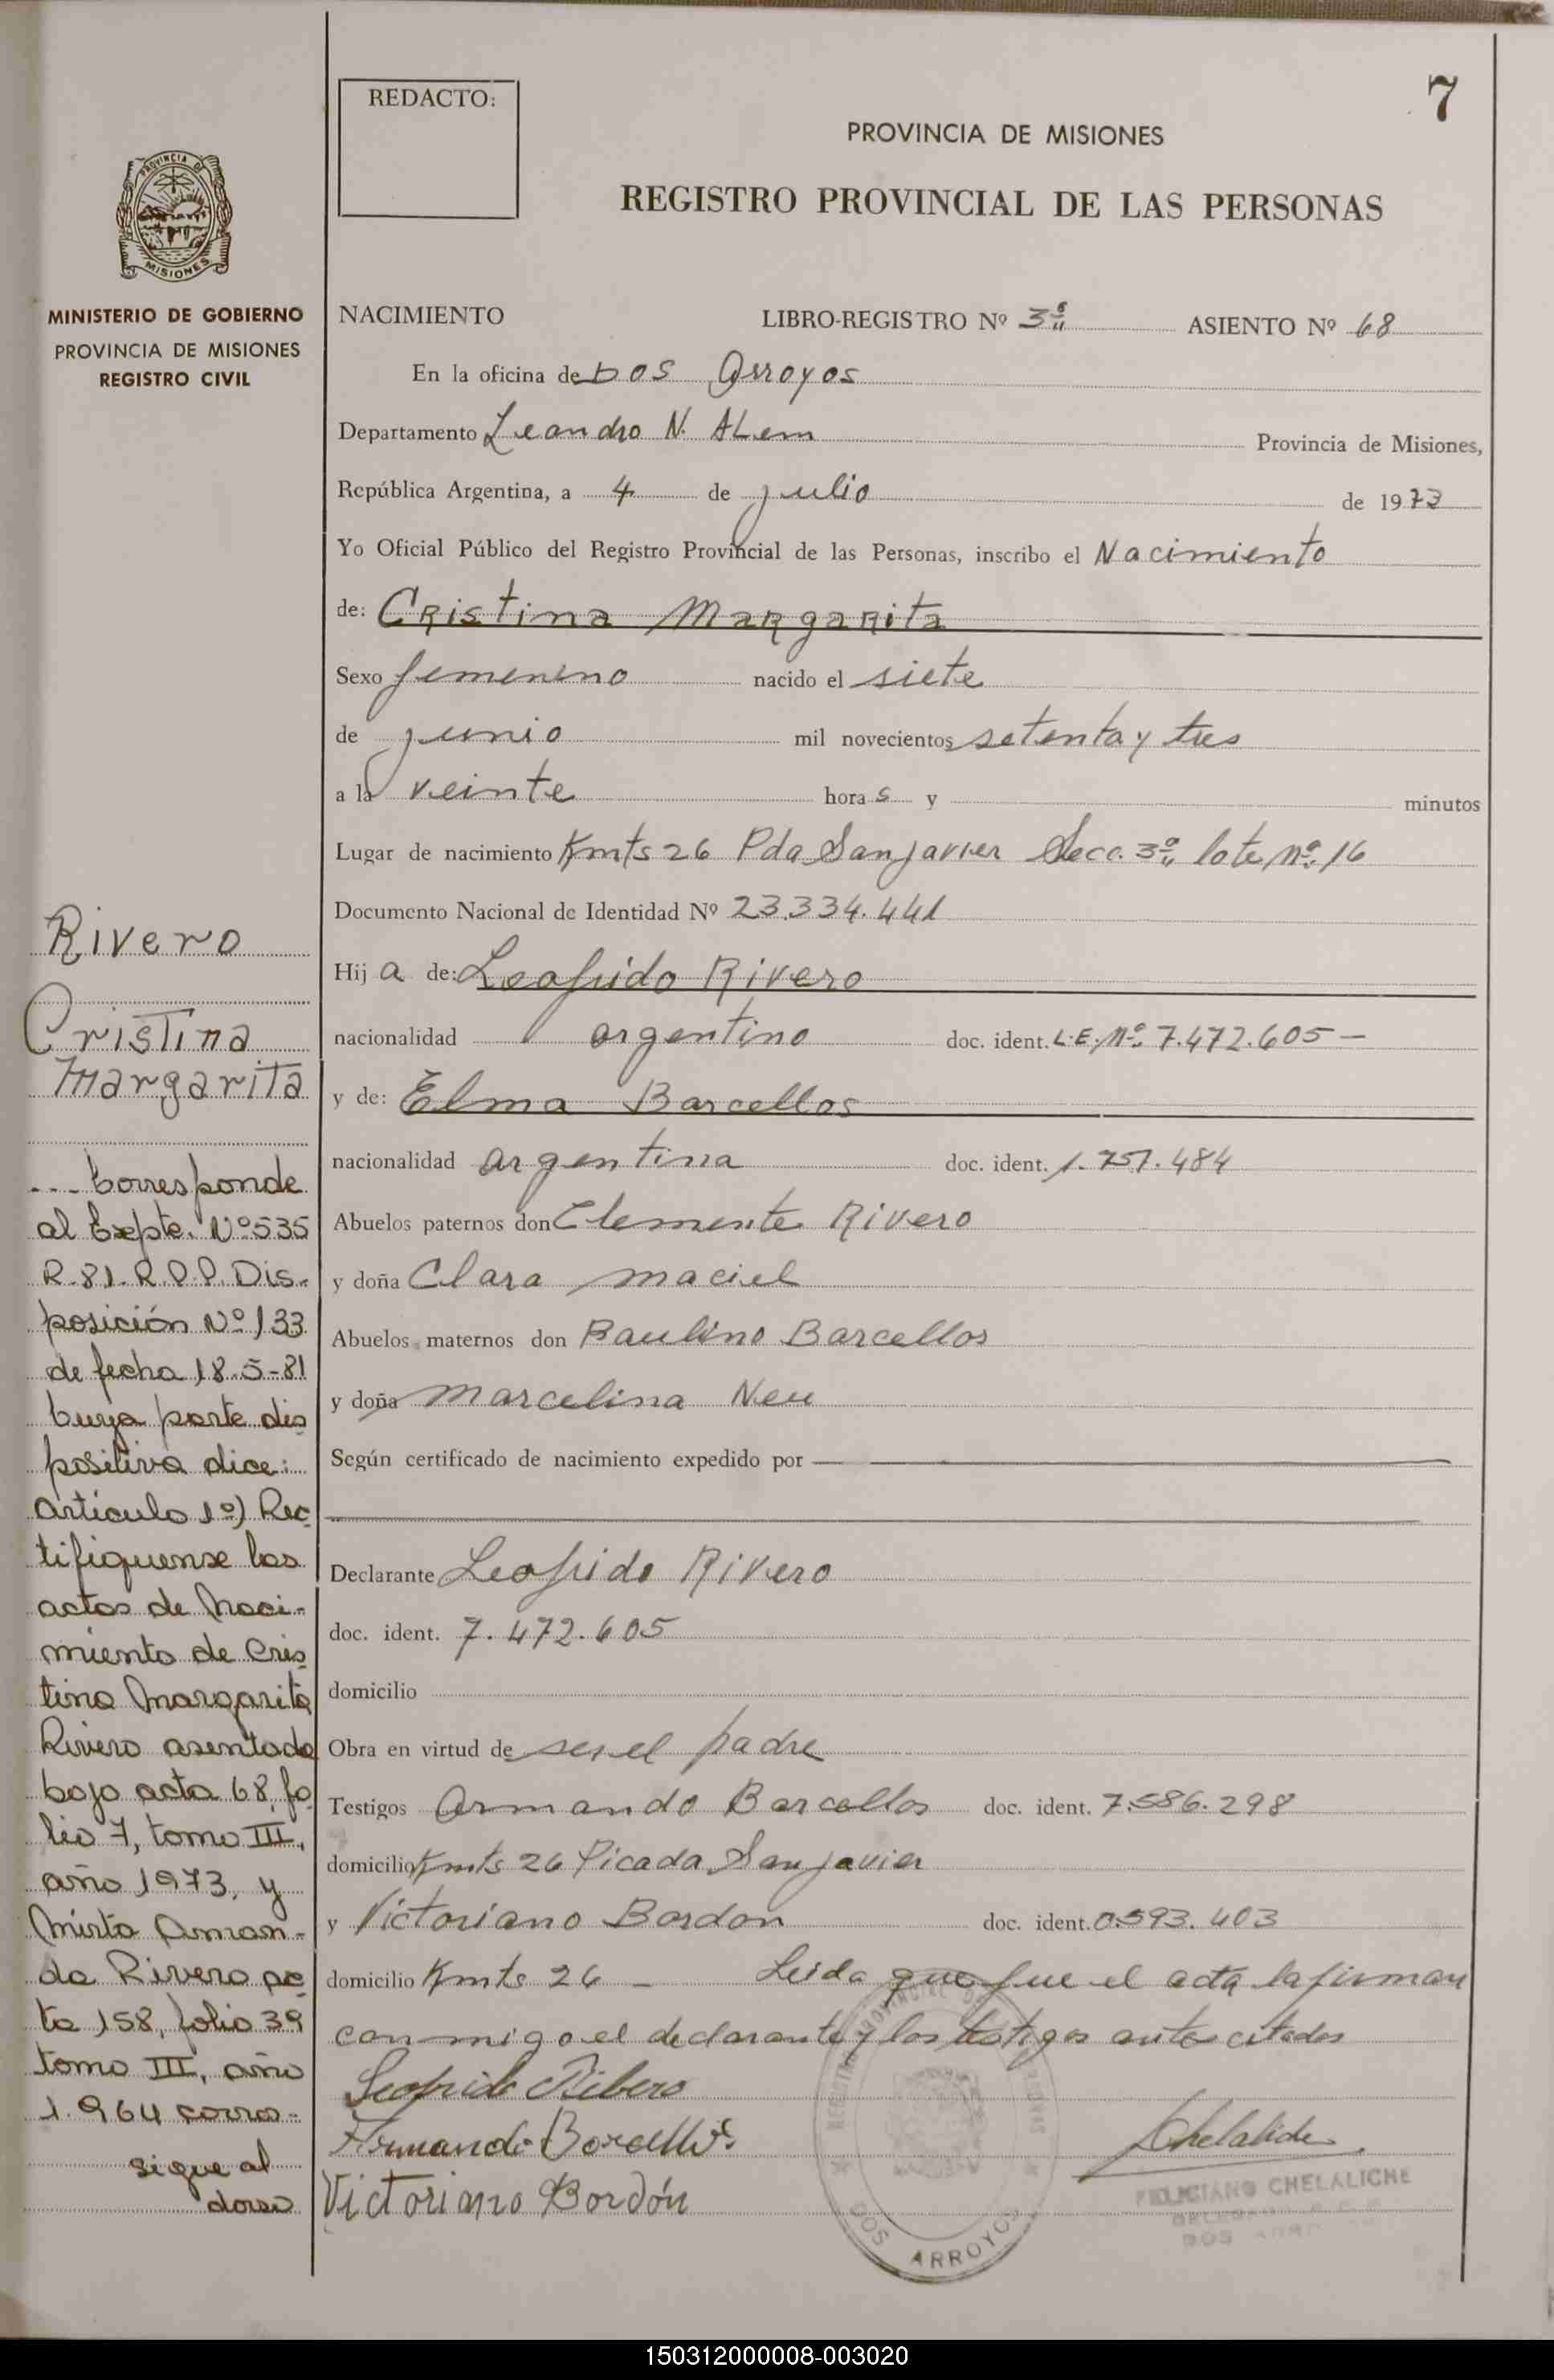 7
REDACTO:
PROVINCIA DE MISIONES
REGISTRO PROVINCIAL DE LAS PERSONAS
PROVINCIA DE
MISIONES
MINISTERIO DE GOBIERNO
PROVINCIA DE MISIONES
REGISTRO CIVIL
NACIMIENTO LIBRO-REGISTRO Nº 3º ASIENTO Nº 68
En la oficina de DOS Arroyos
Departamento Leandro N. ALem Provincia de Misiones,
República Argentina, a 4 de julio de 1973
Yo Oficial Público del Registro Provincial de las Personas, inscribo el Nacimiento
de: Cristina Margarita
Sexo femenino nacido el siete
de junio mil novecientos setenta y tres
a la veinte hora s y minutos
Lugar de nacimiento Kmts 26 Pda San javier Secc. 3º lote nº 16
Documento Nacional de Identidad Nº 23.334.441
Hij a de: Leofrido Rivero
nacionalidad argentino doc. ident. L.E. Nº 7.472.605 —
y de: Elma Barcellos
nacionalidad argentina doc. ident. 1.757.484
Abuelos paternos don Clemente Rivero
y doña Clara maciel
Abuelos maternos don Paulino Barcellos
y doña Marcelina Neu
Según certificado de nacimiento expedido por —
Declarante Leofrido Rivero
doc. ident. 7.472.605
domicilio
Obra en virtud de ser el padre
Testigos Armando Barcellos doc. ident. 7.586.298
domicilio Kmts 26 Picada San javier
y Victoriano Bordon doc. ident. 0.593.403
domicilio Kmts 26 — Leida que fue el acta la firman
conmigo el declarante y los testigos antes citados
Leofrido Ribero
Armando Barcellos
Victoriano Bordón
Chelaliche
FELICIANO CHELALICHE
DOS
DOS ARROYOS
Rivero
Cristina
Margarita
... Corresponde
al Expte. Nº 535
R-81-R.P.P. Dis-
posición Nº 133
de fecha 18-5-81
Cuya parte dis
positiva dice:
artículo 1º) Rec
tifiquense las
actas de Naci-
miento de Cris
tina Margarita
Rivero asentada
bajo acta 68, fo
lio 7, tomo III,
año 1973, y
Mirta Aman-
da Rivero ac
ta 158, folio 39
tomo III, año
1.964 corres-
sigue al
dorso
150312000008-003020